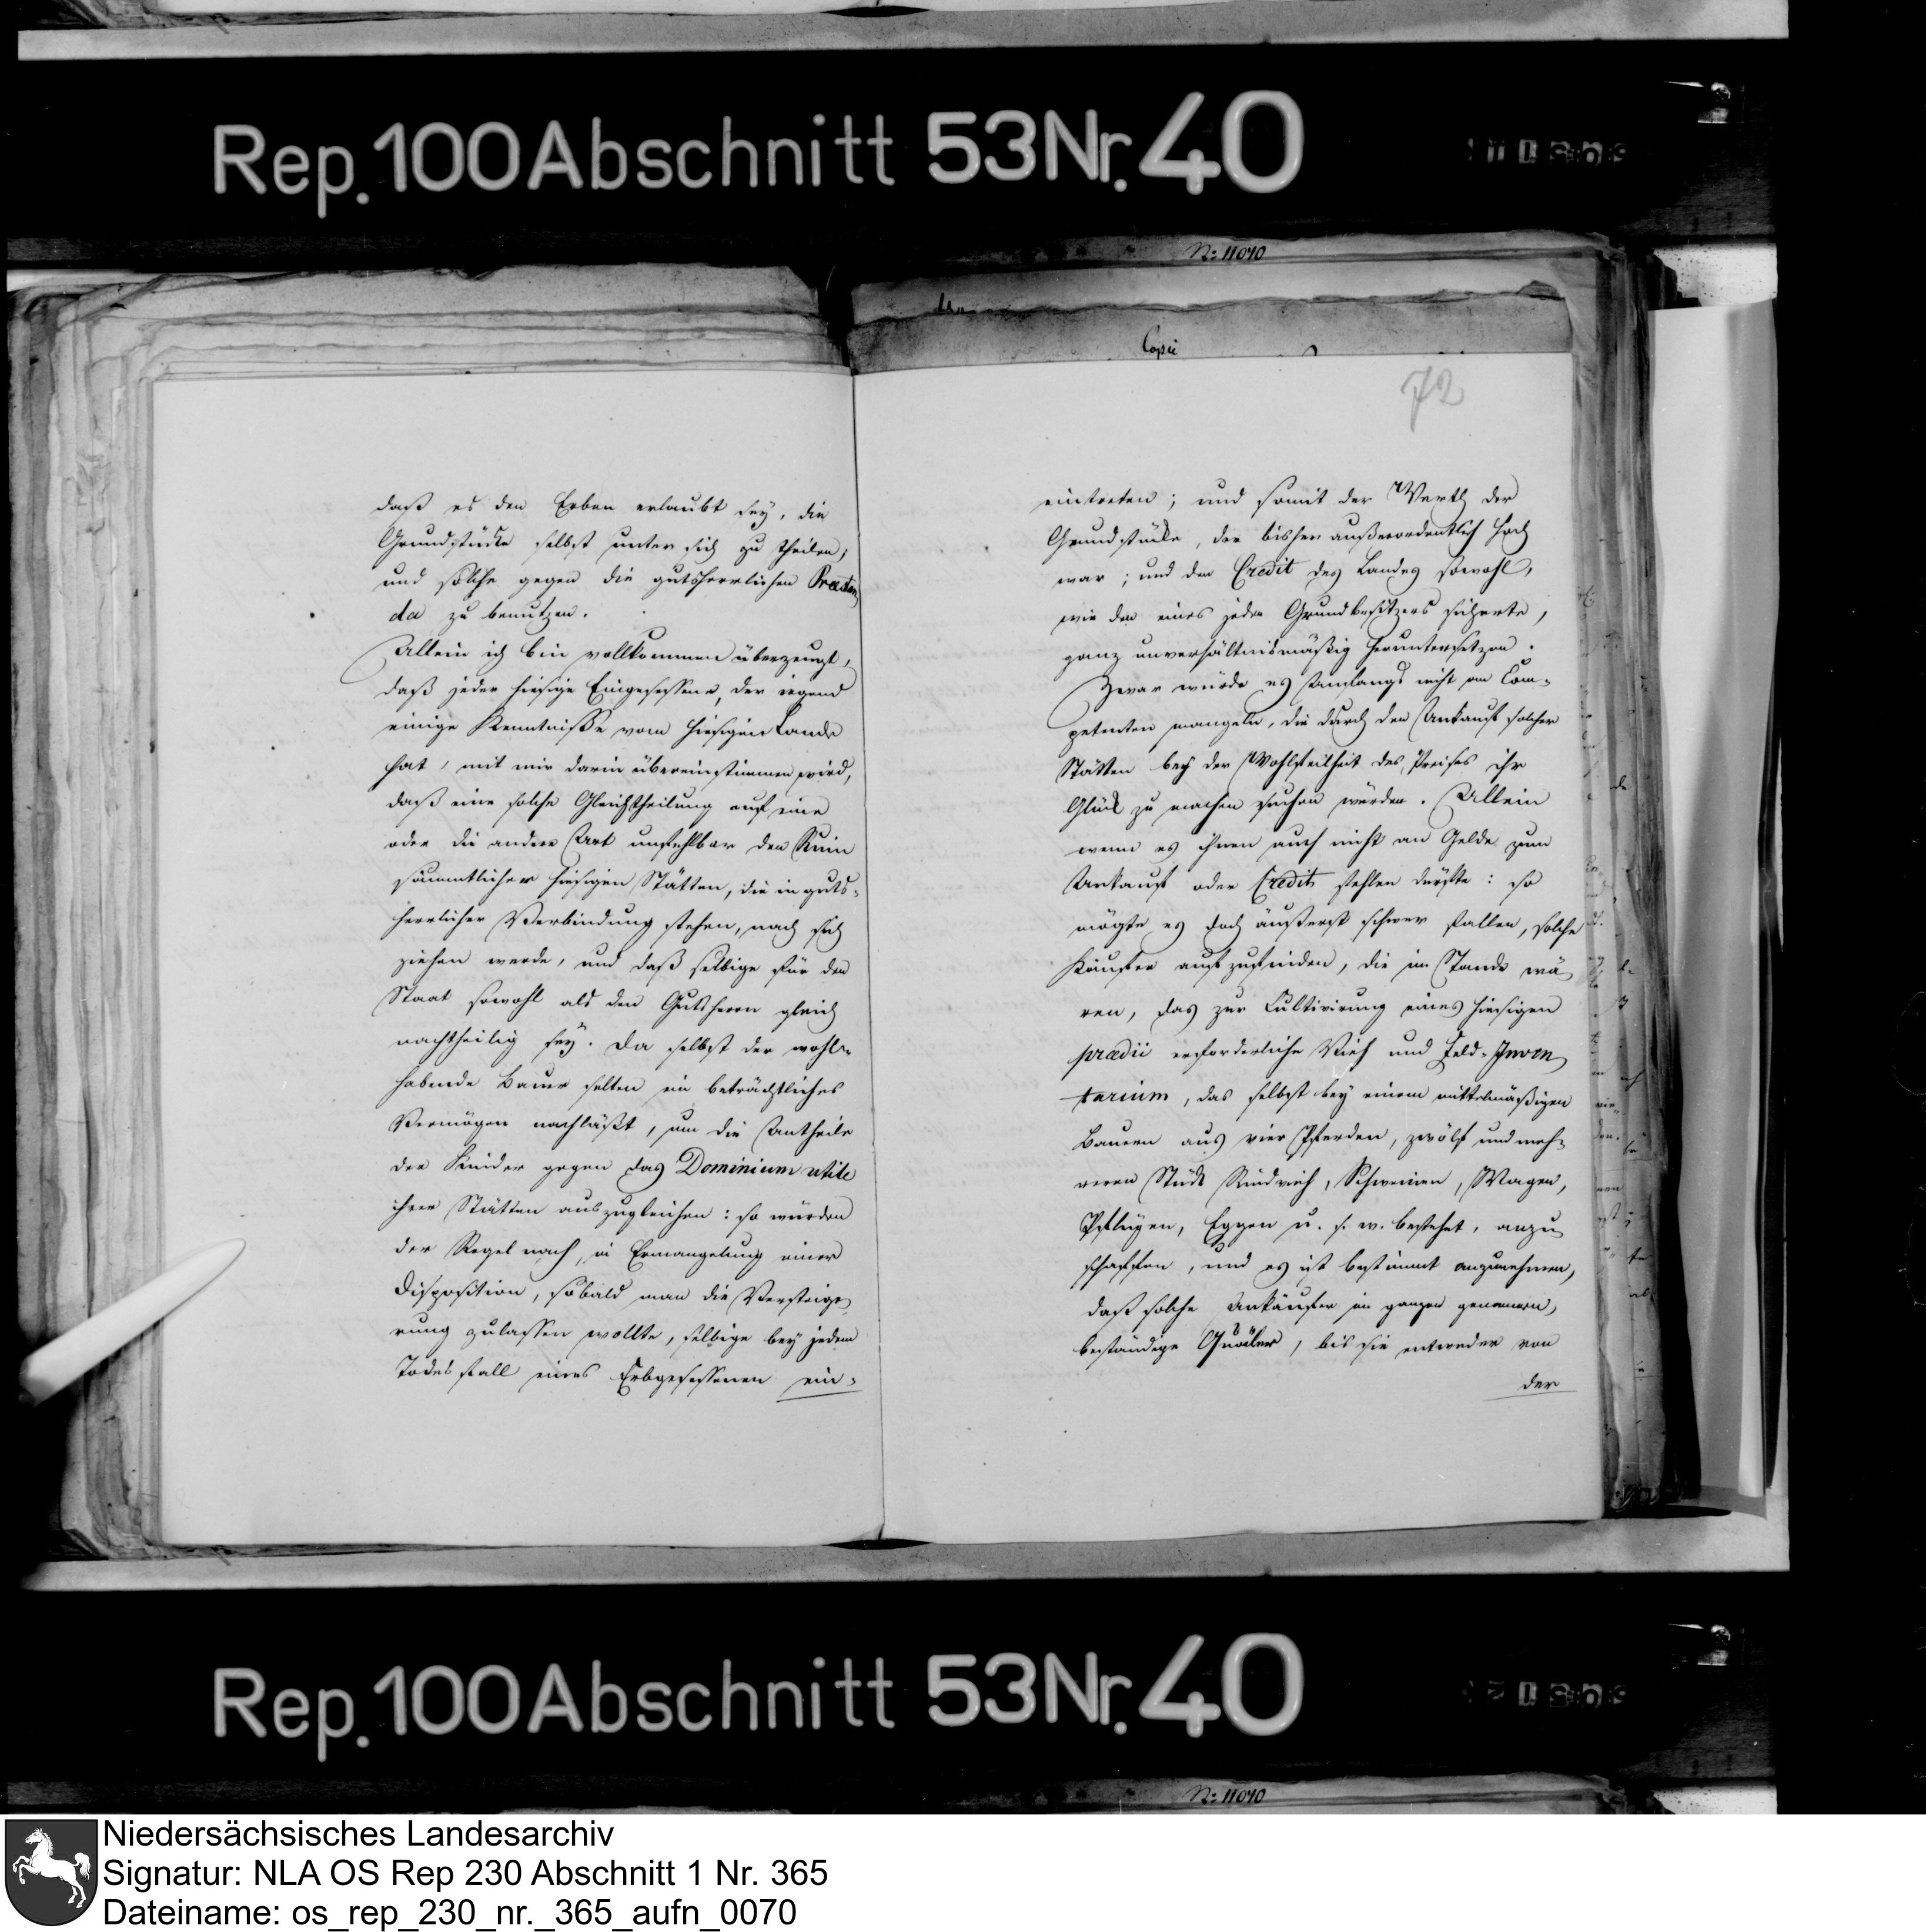 Rep. 100 Abschnitt 53 Nr. 40
N: 11010
Copie
72
daß es den Erben erlaubt sey, die
Grundstücke selbst unter sich zu theilen,
und solche gegen die gutsherrlichen Præstan
da zu benutzen.
Allein ich bin vollkommen überzeugt,
daß jeder hiesige Eingesessene, der irgend
einige Kenntnisse vom hiesigen Lande
hat, mit mir darin übereinstimmen wird,
daß eine solche Gleichtheilung auf eine
oder die andere Art unfehlbar den Ruin
sämmtlicher hiesigen Stätten, die in guts-
herrlicher Verbindung stehen, nach sich
ziehen werde, und daß selbige für den
Staat sowohl als den Gutsherrn gleich
nachtheilig sey. Da selbst der wohl-
habende Bauer selten ein beträchtliches
Vermögen nachläßt, um die Antheile
der Kinder gegen das Dominium utile
ihrer Stätten auszugleichen: so würden
der Regel nach, in Ermangelung einer
Disposition, sobald man die Versteige
rung zulassen wollte, selbige bey jedem
Todesfall eines Erbgesessenen ein-
eintreten; und somit der Werth der
Grundstücke, der bisher außerordentlich hoch
war; und den Credit des Landes sowohl,
wie den eines jeden Grundbesitzers sicherte,
ganz unverhältnismäßig heruntersetzen.
Zwar würde es Anfangs nicht an Com-
petenten mangeln, die durch den Ankauf solcher
Stätten bey der Wohlfeilheit des Preises ihr
Glück zu machen suchen würden. Allein
wenn es ihnen auch nicht an Gelde zum
Ankauf oder Credit fehlen dürfte: so
mögte es doch äußerst schwer fallen, solche
Käufer aufzufinden, die im Stande wä
ren, das zur Cultivirung eines hiesigen
prædii erforderliche Vieh und Feld-Inven
tarium, das selbst bey einem mittelmäßigen
Bauern aus vier Pferden, zwölf und meh-
reren Stück Rindvieh, Schweinen, Wagen,
Pflügen, Eggen u. s. w. bestehet, anzu
schaffen, und es ist bestimmt anzunehmen,
daß solche Ankäufer im ganzen genommen,
beständige Quäler, bis sie entweder von
der
Rep. 100 Abschnitt 53 Nr. 40
N: 11010
Niedersächsisches Landesarchiv
Signatur: NLA OS Rep 230 Abschnitt 1 Nr. 365
Dateiname: os_rep_230_nr._365_aufn_0070